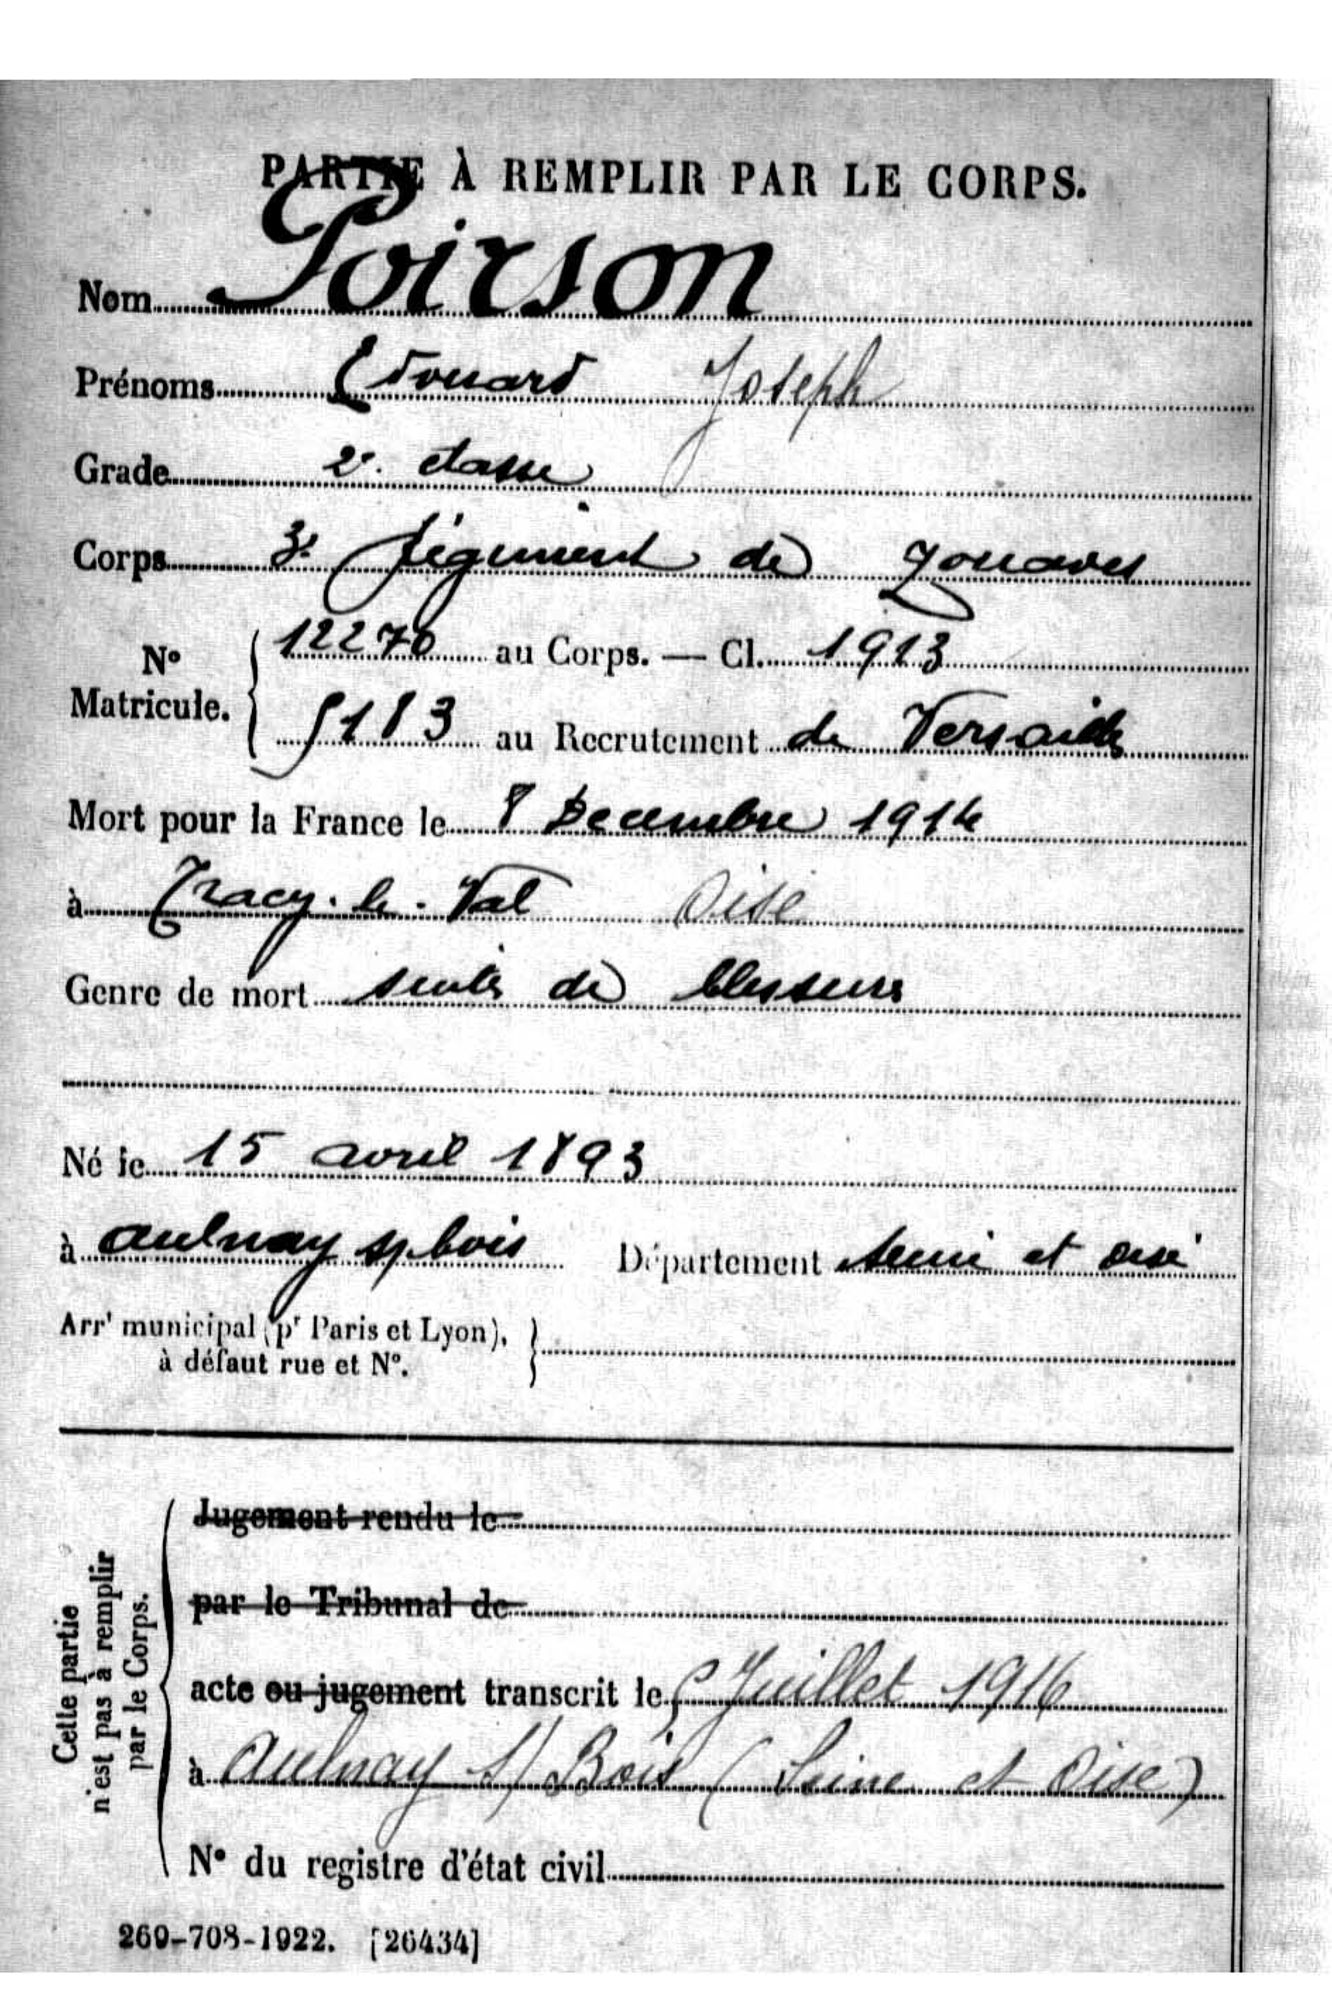 PARTIE À REMPLIR PAR LE CORPS.
Nom Poirson
Prénoms Edouard Joseph
Grade 2e. classe
Corps 3e Régiment de Zouaves
No Matricule. 12270 au Corps. — Cl. 1913
5183 au Recrutement de Versailles
Mort pour la France le 8 Decembre 1914
à Tracy-le-Val Oise
Genre de mort suites de blessures
Né le 15 avril 1893
à aulnay s/ bois Département seine et oise
Arrt municipal (pr Paris et Lyon),
à défaut rue et No.
Cette partie
n'est pas à remplir
par le Corps.
Jugement rendu le
par le Tribunal de
acte ou jugement transcrit le Juillet 1916
à Aulnay s/ Bois (Seine et Oise)
No du registre d'état civil
269-708-1922. [26434]